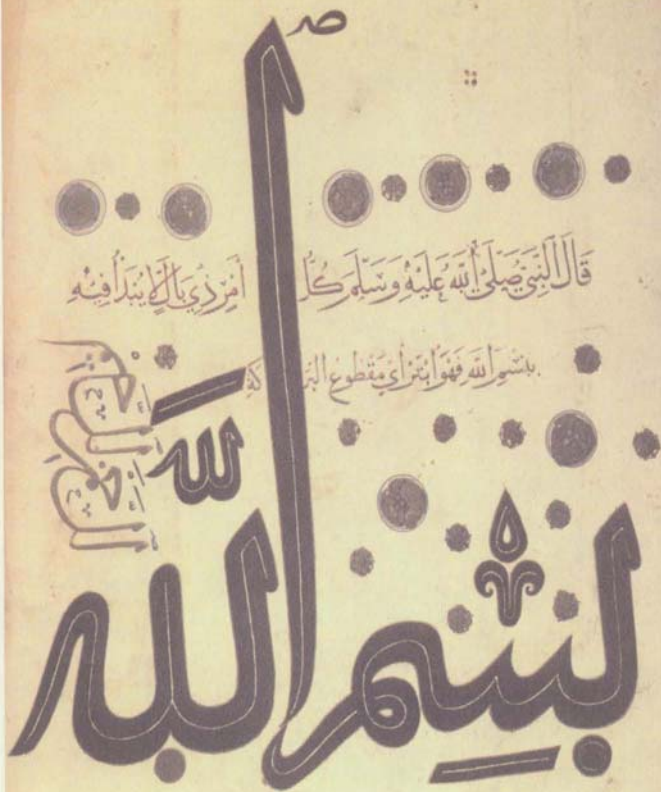 قَالَ النَّبِيُّ صَلَّى اللَّهُ عَلَيْهِ وَسَلَّمَ كُلُّ أَمْرٍ ذِي بَالٍ لَا يُبْدَأُ فِيهِ
بِبِسْمِ اللَّهِ فَهُوَ أَبْتَرُ أَيْ مَقْطُوعُ الْبَرَكَةِ
بِسْمِ اللَّهِ
الرَّحْمَٰنِ الرَّحِيمِ